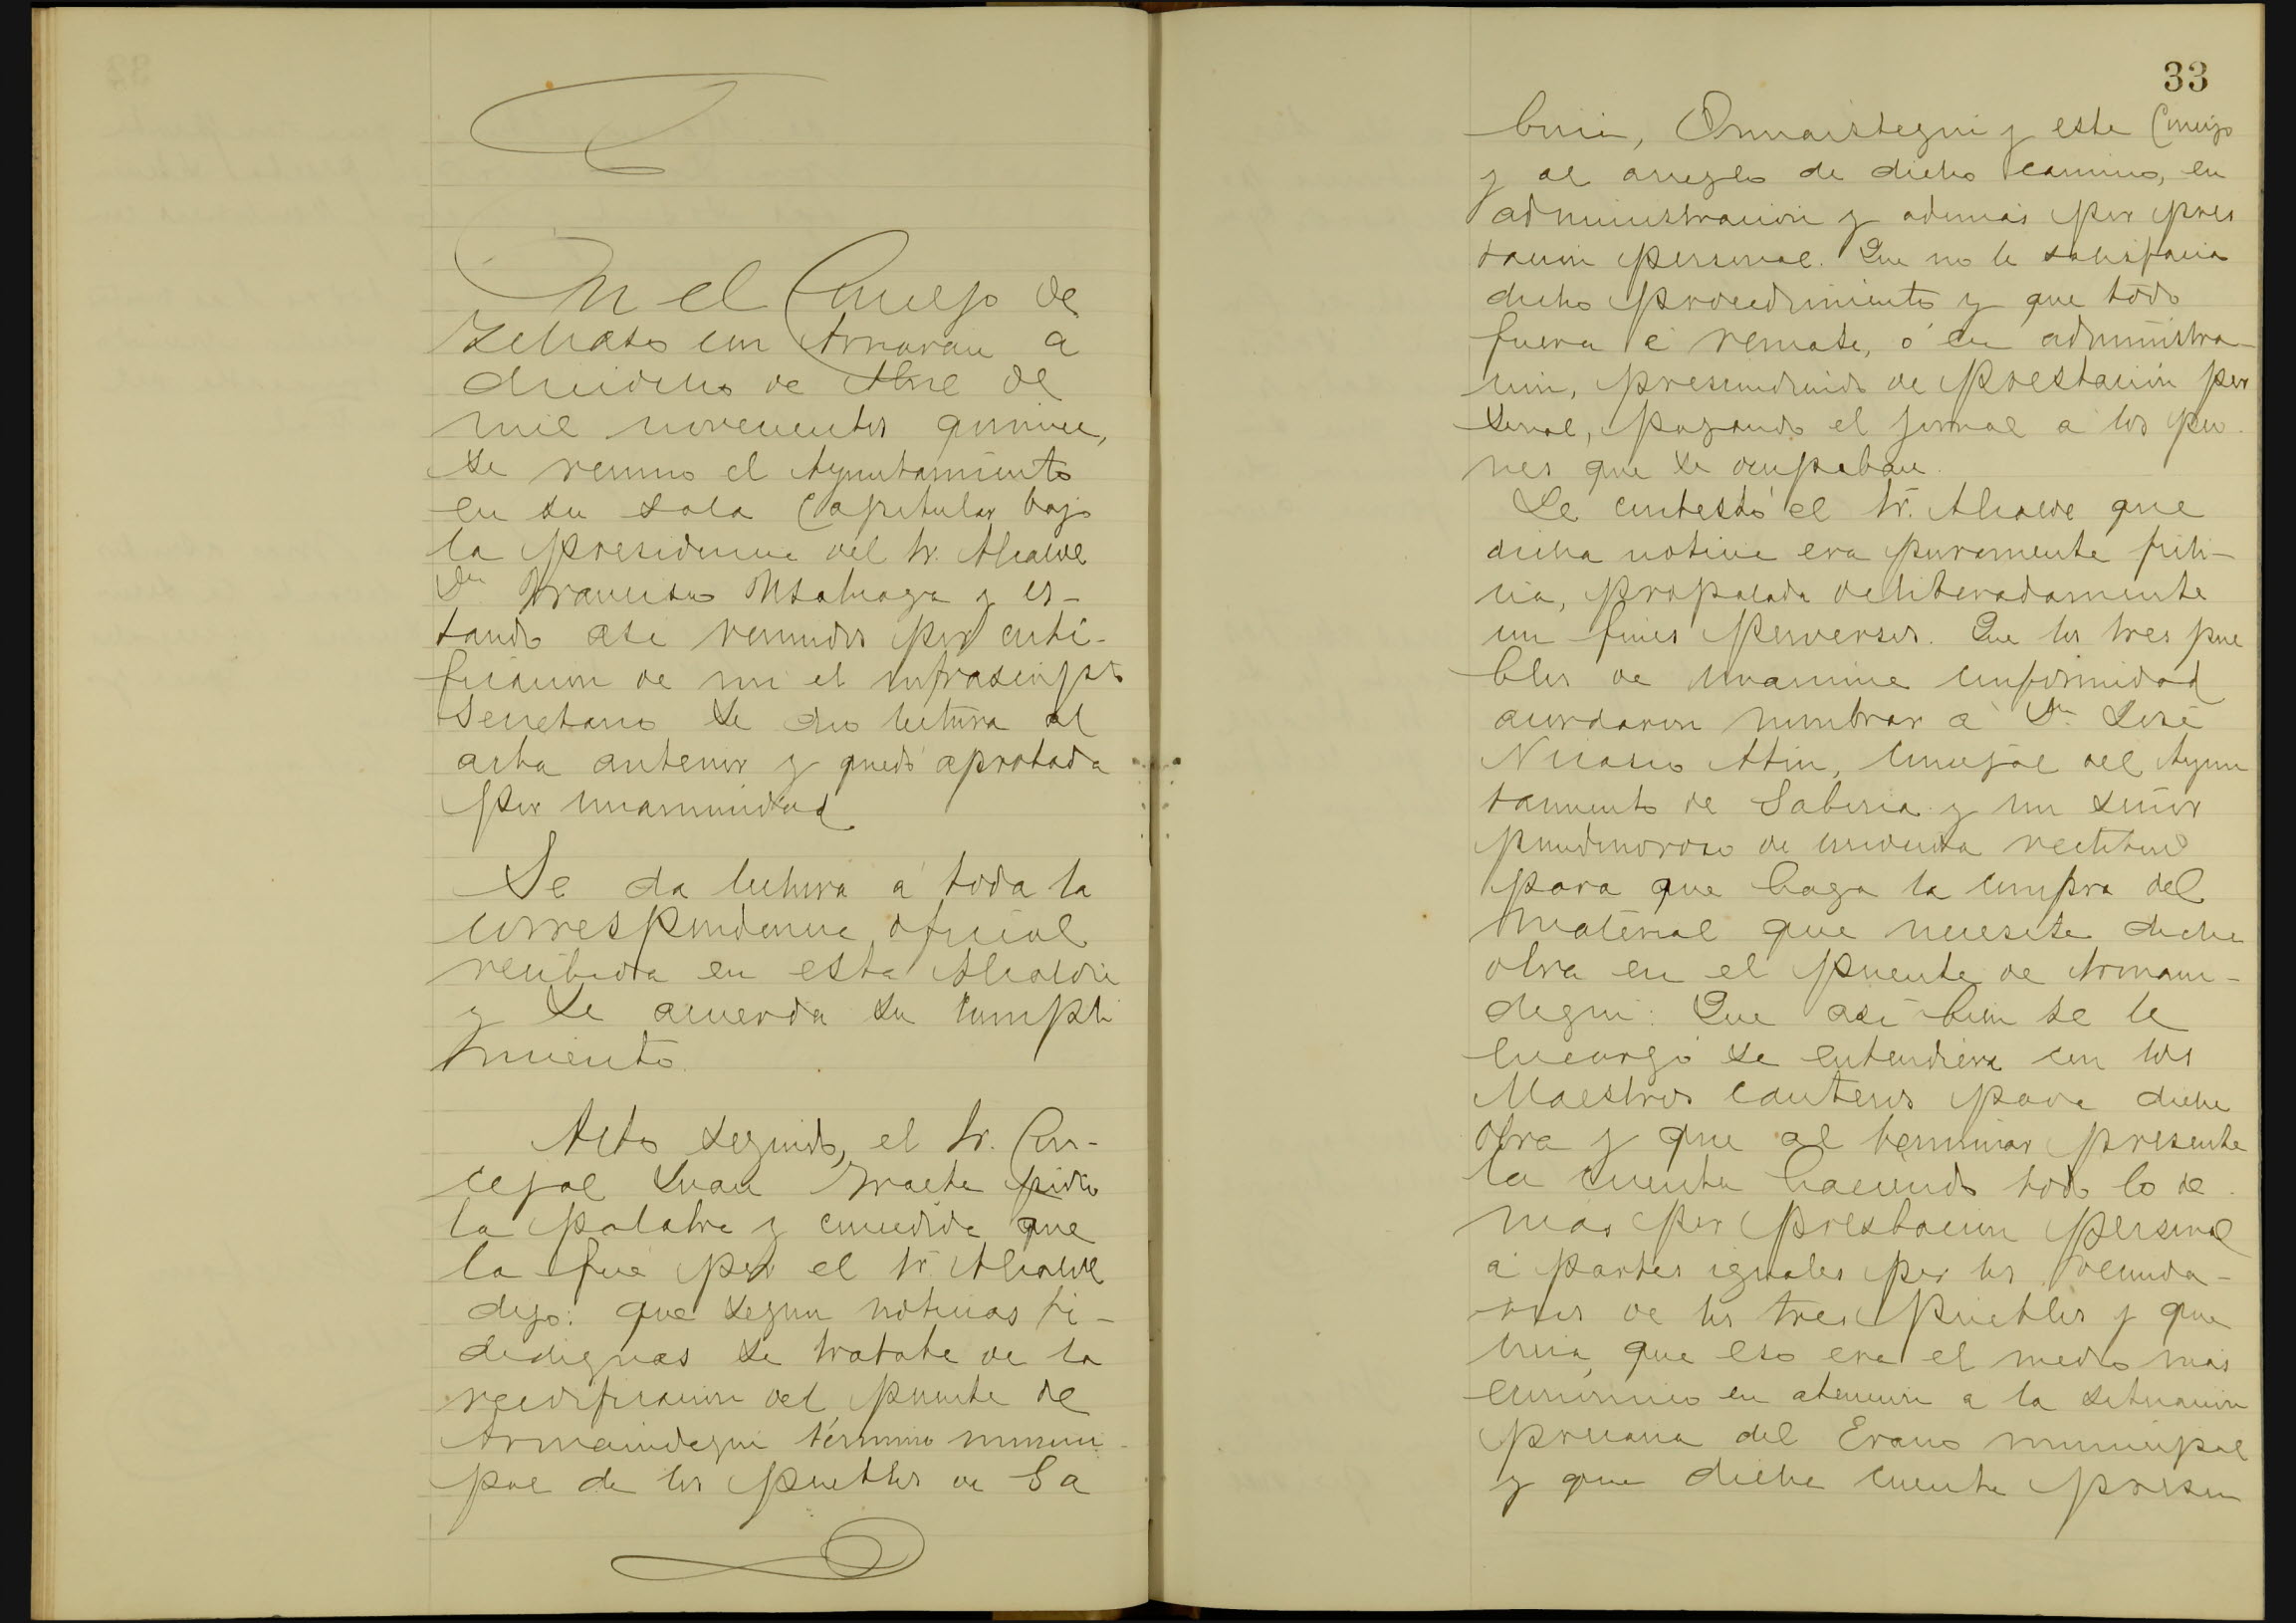 En el Concejo de
Ichaso con Arriaran a
dieciocho de Abril de
mil novecientos quince,
se reunio el Ayuntamiento
en su sala Capitular bajo
la presidencia del Sr. Alcalde
Dn Francisco y es-
tando asi reunidos por certi-
ficacion de mi el infrascripto
Secretario se dio lectura al
acta anterior y quedó aprobada
por unanimidad
Se da lectura á toda la
correspondencia oficial
recibida en esta Alcaldia
y se acuerda su cumpli
miento.
Acto seguido, el Sr. Con-
cejal Juan Iraeta pidio
la palabra y concedida que
la fué por el Sr. Alcalde
dijo: que segun noticias fi-
dedignas se trataba de la
reedificacion del puente de
Armaindegui término munici-
pal de los pueblos de Ga
33
biria, Ormaistegui y este Concejo
y al arreglo de dicho camino, en
administracion y además por pres
tacion personal. Que no le satisfacia
dicho procedimiento y que todo
fuera á remate, ó en administra-
cion, prescindiendo de prestación per
sonal, pagando el jornal a los peo-
nes que se ocupaban.
Le contestó el Sr. Alcalde que
dicha noticia era puramente ficti-
cia, propalada deliberadamente
con fines perversos. Que los tres pue
blos de unanime conformidad
acordaron nombrar á Dn José
Nicasio Atin, Concejal del Ayun
tamiento de Gabiria y un señor
pundonoroso de conocida rectitud
para que haga la compra del
material que necesite dicha
obra en el puente de Armain-
degui: Que asi bien se le
encargó se entendiera con los
Maestros canteros para dicha
obra y que al terminar presente
la cuenta haciendo todo lo de
mas por prestacion personal
á partes iguales por los vecinda-
rios de los tres pueblos y que
creia, que eso era el medio mas
económico en atencion a la situacion
precaria del Erario municipal
y que dicha cuenta presen